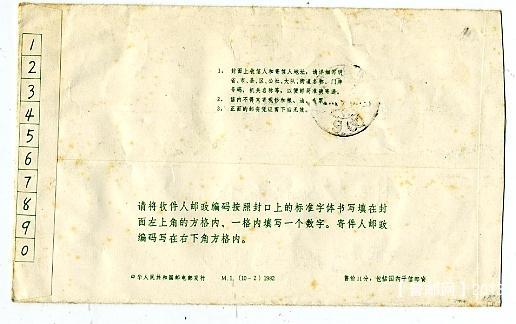 1
2
3
4
5
6
7
8
9
0
1. 封面上收信人和寄信人地址,请详细写明
省、市、县、区、公社、大队、街道名称、门牌
号码,机关名称等,以便邮局准确寄递。
2. 信内不得夹寄现钞和粮、油、
3. 正面的邮资凭证剪下后无效。
请将收件人邮政编码按照封口上的标准字体书写填在封
面左上角的方格内,一格内填写一个数字。寄件人邮政
编码写在右下角方格内。
中华人民共和国邮电部发行 M.1. (10-2) 1982 售价11分:包括国内平信邮资